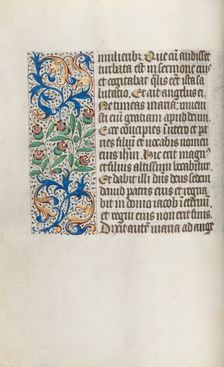 mulieribꝰ Que cū audisset
turbata est in sermone eius
et cogitabat qlis esset ista sa
lutatio Et ait angelus ei
Ne timeas maria inueni
sti enī gratiam apud deum
Ecce concipies in utero et pa
ries filiū et vocabis nomen
eius ihm Hic erit magnꝰ
et filius altissimi vocabitur
Et dabit illi dns deus sedem
dauid patris eius et regna
bit in domo iacob in eternū
et regni eius non erit finis
Dixit autē maria ad ange